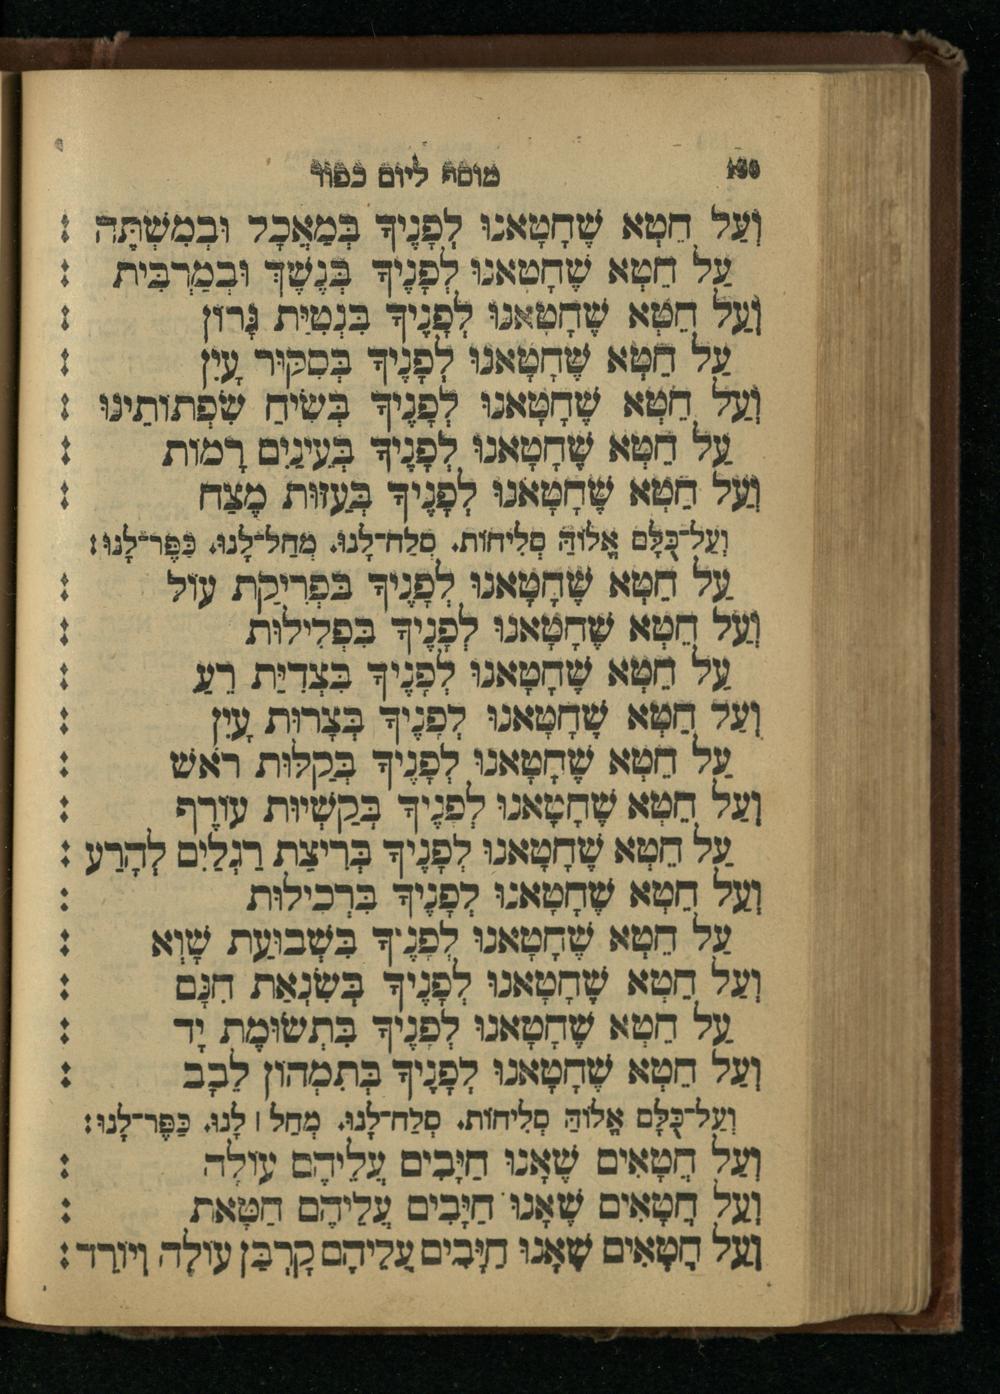 130 מוסף ליום כפור
וְעַל חֵטְא שֶׁחָטָאנוּ לְפָנֶיךָ בְּמַאֲכָל וּבְמִשְׁתֶּה :
עַל חֵטְא שֶׁחָטָאנוּ לְפָנֶיךָ בְּנֶשֶׁךְ וּבְמַרְבִּית :
וְעַל חֵטְא שֶׁחָטָאנוּ לְפָנֶיךָ בִּנְטִיַּת גָּרוֹן :
עַל חֵטְא שֶׁחָטָאנוּ לְפָנֶיךָ בְּסִקּוּר עָיִן :
וְעַל חֵטְא שֶׁחָטָאנוּ לְפָנֶיךָ בְּשִׂיחַ שִׂפְתוֹתֵינוּ :
עַל חֵטְא שֶׁחָטָאנוּ לְפָנֶיךָ בְּעֵינַיִם רָמוֹת :
וְעַל חֵטְא שֶׁחָטָאנוּ לְפָנֶיךָ בְּעַזּוּת מֶצַח :
וְעַל־כֻּלָּם אֱלוֹהַּ סְלִיחוֹת. סְלַח־לָנוּ. מְחַל־לָנוּ. כַּפֶּר־לָנוּ :
עַל חֵטְא שֶׁחָטָאנוּ לְפָנֶיךָ בִּפְרִיקַת עוֹל :
וְעַל חֵטְא שֶׁחָטָאנוּ לְפָנֶיךָ בִּפְלִילוּת :
עַל חֵטְא שֶׁחָטָאנוּ לְפָנֶיךָ בִּצְדִיַּת רֵעַ :
וְעַל חֵטְא שֶׁחָטָאנוּ לְפָנֶיךָ בְּצָרוּת עָיִן :
עַל חֵטְא שֶׁחָטָאנוּ לְפָנֶיךָ בְּקַלּוּת רֹאשׁ :
וְעַל חֵטְא שֶׁחָטָאנוּ לְפָנֶיךָ בְּקַשְׁיוּת עוֹרֶף :
עַל חֵטְא שֶׁחָטָאנוּ לְפָנֶיךָ בְּרִיצַת רַגְלַיִם לְהָרַע :
וְעַל חֵטְא שֶׁחָטָאנוּ לְפָנֶיךָ בִּרְכִילוּת :
עַל חֵטְא שֶׁחָטָאנוּ לְפָנֶיךָ בִּשְׁבוּעַת שָׁוְא :
וְעַל חֵטְא שֶׁחָטָאנוּ לְפָנֶיךָ בְּשִׂנְאַת חִנָּם :
עַל חֵטְא שֶׁחָטָאנוּ לְפָנֶיךָ בִּתְשׂוּמֶת יָד :
וְעַל חֵטְא שֶׁחָטָאנוּ לְפָנֶיךָ בְּתִמְהוֹן לֵבָב :
וְעַל־כֻּלָּם אֱלוֹהַּ סְלִיחוֹת. סְלַח־לָנוּ. מְחַל ׀ לָנוּ. כַּפֶּר־לָנוּ :
וְעַל חֲטָאִים שֶׁאָנוּ חַיָּבִים עֲלֵיהֶם עוֹלָה :
וְעַל חֲטָאִים שֶׁאָנוּ חַיָּבִים עֲלֵיהֶם חַטָּאת :
וְעַל חֲטָאִים שֶׁאָנוּ חַיָּבִים עֲלֵיהֶם קָרְבַּן עוֹלֶה וְיוֹרֵד :